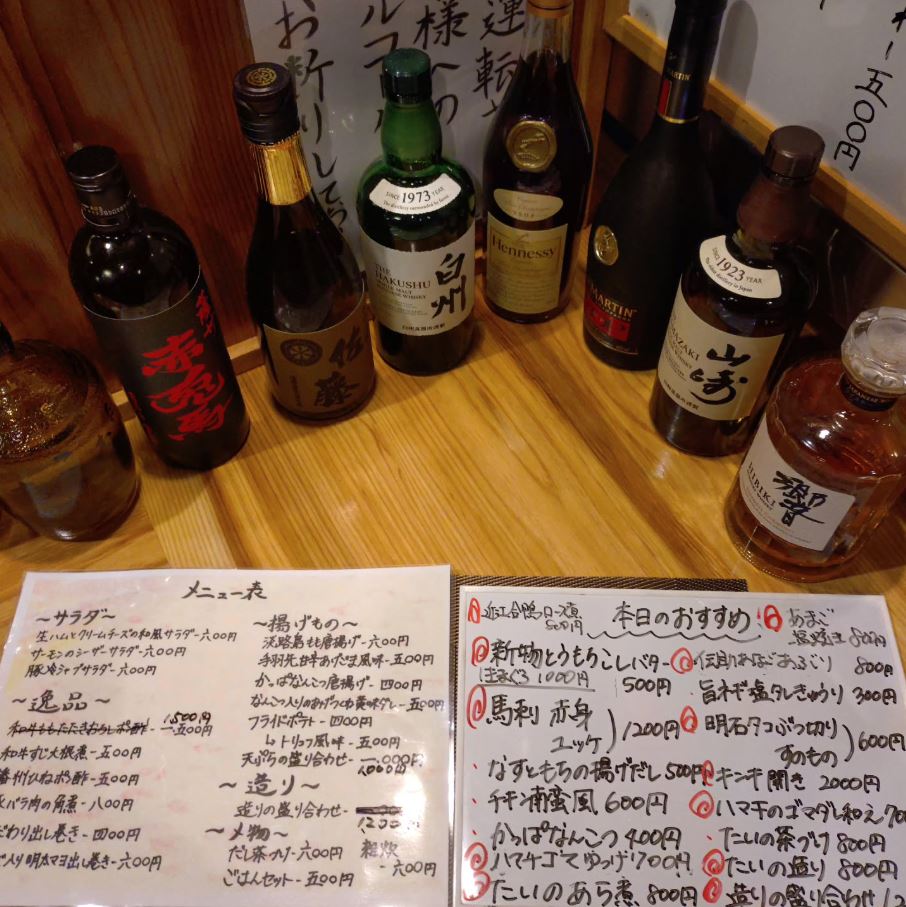 運転
様への
ルコール
お断りして
五〇〇円
SINCE 1973 YEAR
THE HAKUSHU
SINGLE MALT
白州
Hennessy
V.S.O.P
MARTIN
SINCE 1923 YEAR
YAMAZAKI
山崎
HIBIKI
響
赤兎馬
佐藤
メニュー表
〜サラダ〜
生ハムとクリームチーズの和風サラダ-六〇〇円
サーモンのシーザーサラダ-六〇〇円
豚冷シャブサラダ-六〇〇円
〜逸品〜
1500円
和牛すじ大根煮-五〇〇円
播州ひねポ酢-五〇〇円
バラ肉の角煮-八〇〇円
だわり出し巻き-四〇〇円
入り明太マヨ出し巻き-六〇〇円
〜揚げもの〜
淡路鳥もも唐揚げ-六〇〇円
手羽先甘辛あだき風味-五〇〇円
かっぱなんこつ唐揚げ-四〇〇円
なんこつ入りのあげつくね
フライドポテト-四〇〇円
トリュフ風味-五〇〇円
天ぷらの盛り合わせ-一、〇〇〇円
1000円
〜造り〜
造りの盛り合わせ-
1200円
〜〆物〜
だし茶づけ-六〇〇円
雑炊-六〇〇円
ごはんセット-五〇〇円
本日のおすすめ!
近江合鴨ロース
500円
新物とうもろこしバター
500円
1000円
馬刺 赤身
ユッケ
1200円
なすともちの揚げだし 500円
チキン南蛮風 600円
かっぱなんこつ 400円
ハマチゴマゆっけ 700円
たいのあら煮 800円
あまご
塩焼き 800円
伝助あなごあぶり 800円
旨ネギ塩タレきゅうり 300円
明石タコぶつ切り
すのもの
600円
キンキ開き 2000円
ハマチのゴマダレ和え 700
たいの茶づけ 800円
たいの造り 800円
造りの盛り合わせ 12